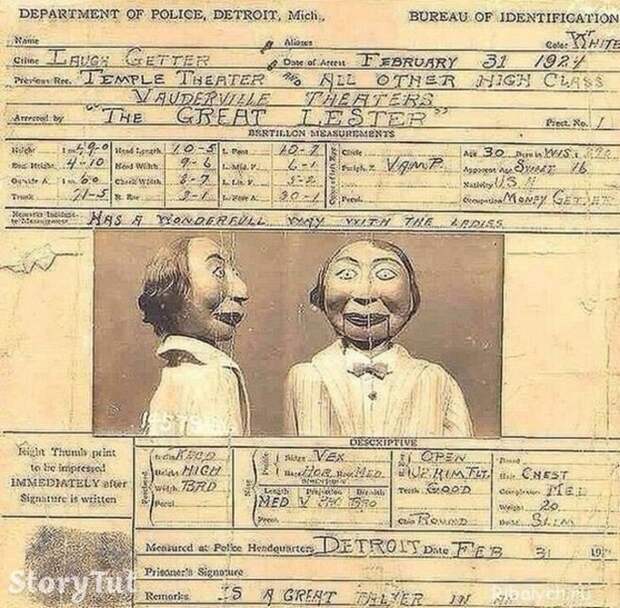 DEPARTMENT OF POLICE, DETROIT, Mich., BUREAU OF IDENTIFICATION
Name Aliases Color WHITE
Crime LAUGH GETTER Date of Arrest FEBRUARY 31 1924
Previous Rec. TEMPLE THEATER AND ALL OTHER HIGH CLASS
VAUDERVILLE THEATERS
Arrested by "THE GREAT LESTER" Prect. No. 1
BERTILLON MEASUREMENTS
Height 1 m Head Length 10-5 L. Foot 10-2 Circle Age 30 Born in WIS.
Eng. Height 4-10 Head Width 9-6 L. Mid. F. 6-1 Periph. Z VAMP. Apparent Age SWEET 16
Outside A. 1 m 60 Cheek Width L. Lit. F. 5-2 Nativity U.S.A
Trunk 71-5 R. Ear L. Fore A. 30-1 Pecul. Occupation MONEY GETTER
Remarks Incident to Measurement HAS A WONDERFULL WAY WITH THE LADIES
DESCRIPTIVE
Right Thumb print
to be impressed
IMMEDIATELY after
Signature is written
Ridge VEX OPEN Beard
Height HIGH Base HOR. Root MED. Hair CHEST
Width BRD DIMENSIONS Teeth GOOD Complexion MED
Pecul Length Projection Breadth Weight 20
MED V
Pecul. Chin ROUND Build SLIM
Measured at Police Headquarters, DETROIT Date FEB 31 19
Prisoner's Signature
Remarks IS A GREAT TALKER IN
StoryTut
Ribalych.ru